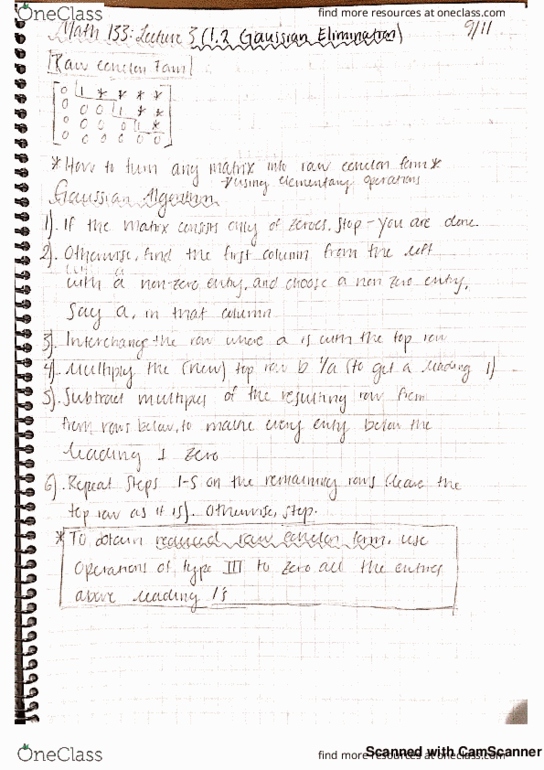 OneClass
find more resources at oneclass.com
Math 133: Lecture 3 (1.2 Gaussian Elimination)
9/11
Row echelon Form
0 1 * * * *
0 0 0 1 * *
0 0 0 0 1 *
0 0 0 0 0 0
* How to turn any matrix into row echelon form *
* using elementary operations
Gaussian Algorithm
1). If the matrix consists only of zeroes, stop - you are done.
2). Otherwise, find the first column from the left
with a non-zero entry, and choose a non zero entry,
say a, in that column
3). Interchange the row where a is with the top row
4). Multiply the (new) top row b 1/a (to get a leading 1)
5). Subtract multiples of the resulting row from
from rows below, to make every entry below the
leading 1 zero
6). Repeat steps 1-5 on the remaining rows (leave the
top row as it is). Otherwise, stop.
* To obtain reduced row echelon form, use
Operations of type III to zero all the entries
above leading 1s
OneClass
find more resources at oneclass.com
Scanned with CamScanner